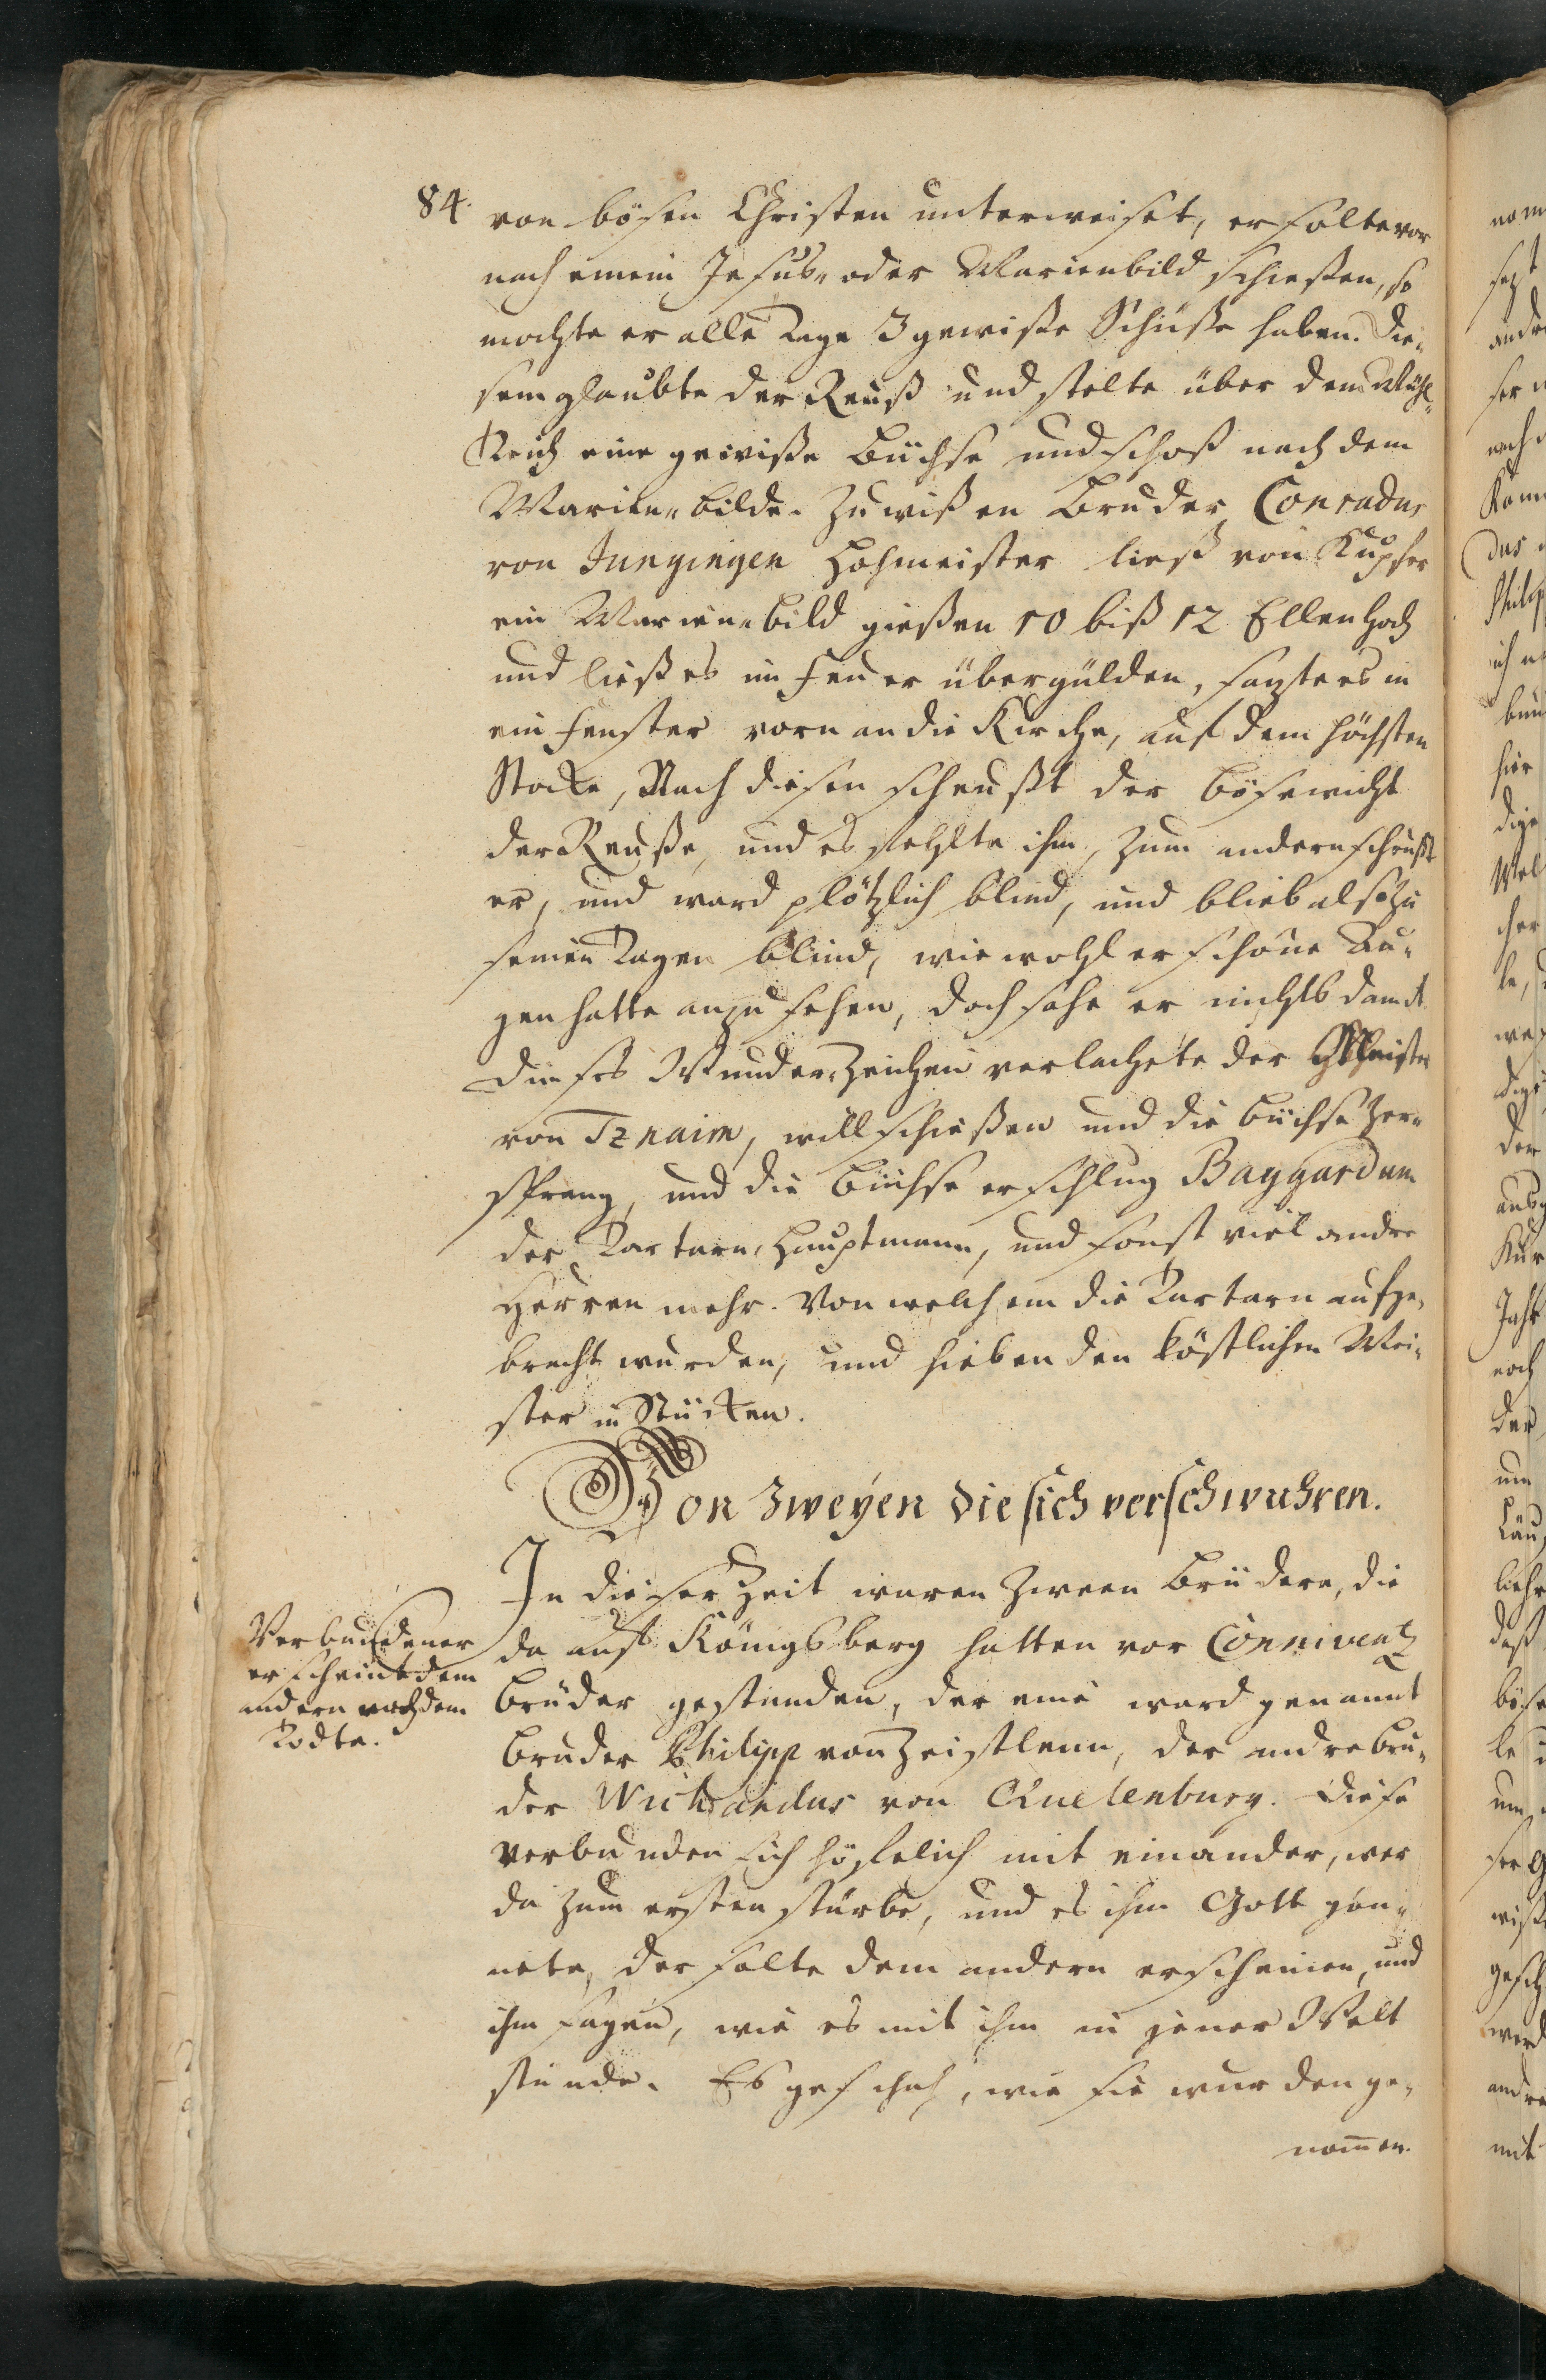 84.
von bösen Christen unterweiset, er solte vor
nach einem Jesus- oder Marienbild schießen, so
mochte er alle Tage 3 gewiße Schüsse haben. Die-
sem glaubte der Reuß und stelte über dem Mühl-
Teich eine gewiße Büchse und schoß nach dem
Marien-bilde. Zu wißen Bruder Conradus
von Jungingen Hohmeister ließ von Kupfer
ein Marien-bild gießen 10 biß 12 Ellen hoch
und ließ es im Feuer übergülden, satzte es in
ein Fenster vorn an die Kirche, auf dem höchsten
Stocke, Nach diesen scheußt der bösewicht
der Reuße, und es fehlte ihm, zum andern scheußt
er, und ward plötzlich blind, und blieb also zu
seinen Tagen blind, wiewohl er schöne Au-
gen hatte anzusehen, doch sahe er nichts damit
Dieses Wunder-Zeichen verlachete der Meister
von Tznaim, will schießen und die büchse zer-
sprang, und die büchse erschlug Baggardum
der Tartarn Hauptmann, und sonst viel andre
Herren mehr. Von welchem die Tartarn aufge-
bracht wurden, und hieben den köstlichen Mei-
ster in Stücken.
Von Zweyen die sich verschwuhren.
In dieser Zeit waren Zween Brüdere, die
da auf Königsberg hatten vor Conniventz
Brüder gestanden, der eine ward genannt
Bruder Philipp von Zeistlenn, der andre Bru-
der Wichandus von Quelenburg. Diese
verbunden sich höflich mit einander, wer
da zum ersten stürbe, und es ihm Gott gön-
nete, der solte dem andern erscheinen, und
ihm sagen, wie es mit ihm in jener Welt
stünde. Es geschah, wie sie wurden ge-
nommen.
Verbundener
erscheint dem
andern nach dem
Todte.